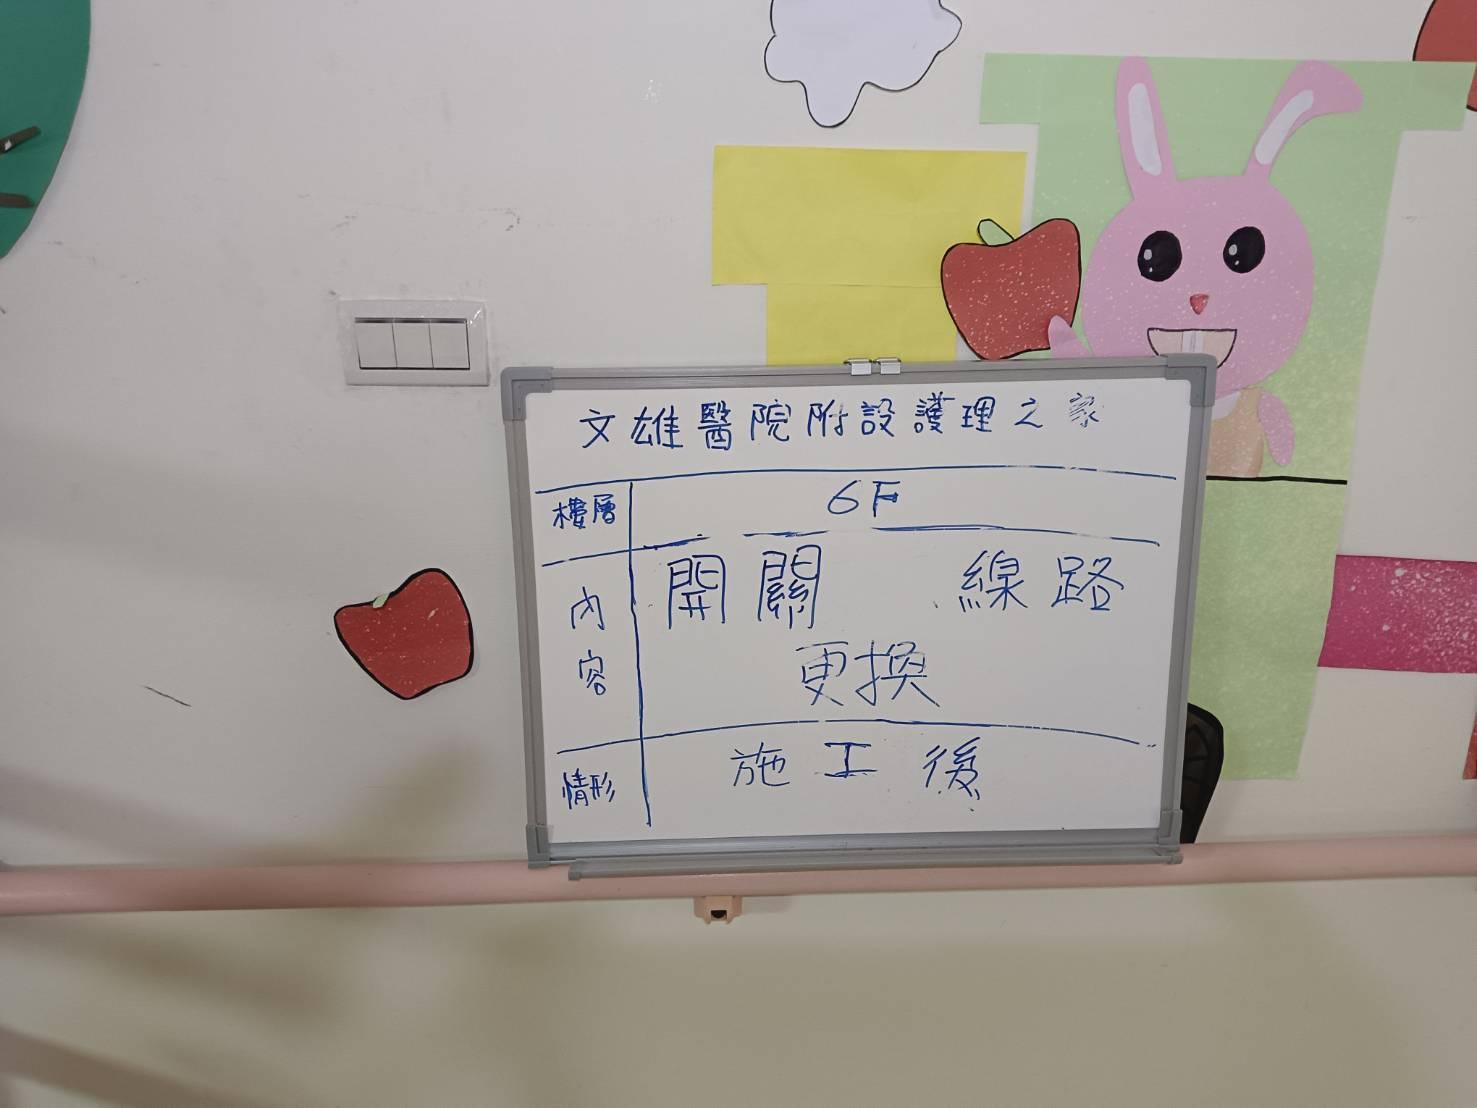 文雄醫院附設護理之家
樓層 6F
內容 開關 線路
更換
情形 施工後